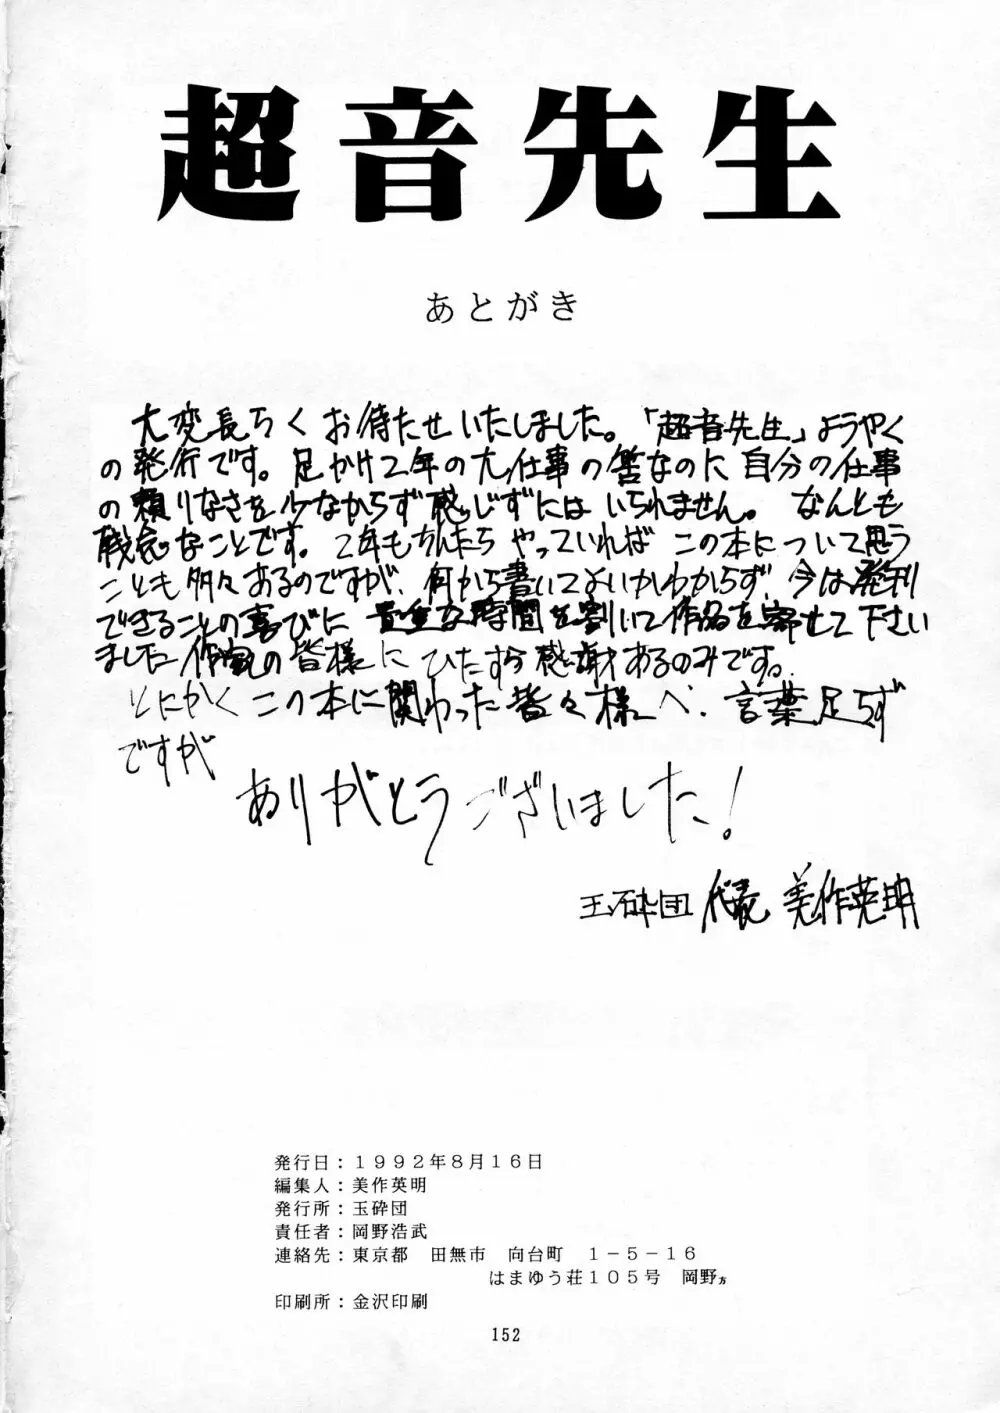 超音先生
あとがき
大変長らくお待たせいたしました。「超音先生」ようやく
の発行です。足かけ2年の大仕事の筈なのに自分の仕事
の頼りなさを少なからず感じずにはいられません。なんとも
残念なことです。2年もちんたらやっていればこの本について思う
ことも多々あるのですが、何から書いてよいかわからず、今は発刊
できることの喜びに貴重な時間を割いて作品を寄せて下さい
ました作家の皆様にひたすら感謝あるのみです。
とにかくこの本に関わった皆々様へ、言葉足らず
ですが
ありがとうございました!
玉砕団 代表 美作英明
発行日:1992年8月16日
編集人:美作英明
発行所:玉砕団
責任者:岡野浩武
連絡先:東京都 田無市 向台町 1-5-16
はまゆう荘105号 岡野方
印刷所:金沢印刷
152